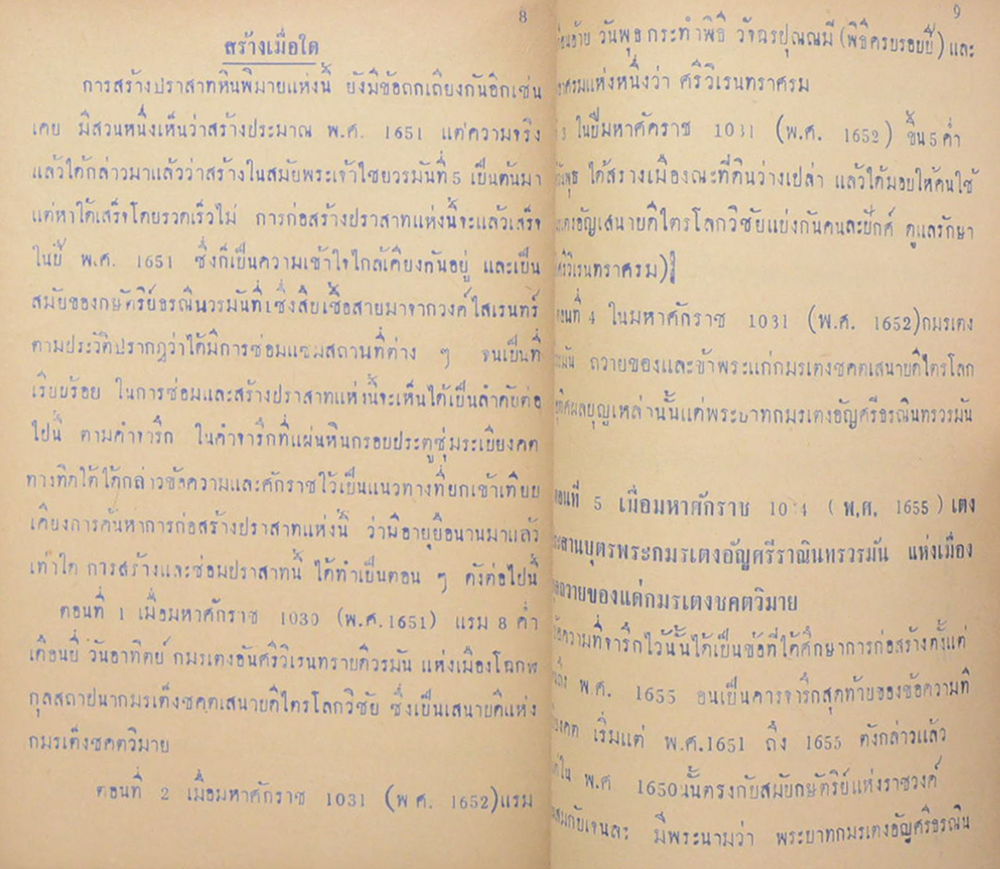 8
สร้างเมื่อใด
การสร้างปราสาทหินพิมายแห่งนี้ ยังมีข้อถกเถียงกันอีกเช่น
เคย มีส่วนหนึ่งเห็นว่าสร้างประมาณ พ.ศ. 1651 แต่ความจริง
แล้วได้กล่าวมาแล้วว่าสร้างในสมัยพระเจ้าไชยวรมันที่ 5 เป็นต้นมา
แต่หาได้เสร็จโดยรวดเร็วไม่ การก่อสร้างปราสาทแห่งนี้จะแล้วเสร็จ
ในปี พ.ศ. 1651 ซึ่งก็เป็นความเข้าใจใกล้เคียงกันอยู่ และเป็น
สมัยของกษัตริย์ธรณินวรมันที่1ซึ่งสืบเชื้อสายมาจากวงค์ไสเรนทร์
ตามประวัติปรากฏว่าได้มีการซ่อมแซมสถานที่ต่าง ๆ จนเป็นที่
เรียบร้อย ในการซ่อมและสร้างปราสาทแห่งนี้จะเห็นได้เป็นลำดับต่อ
ไปนี้ ตามคำจารึก ในคำจารึกที่แผ่นหินกรอบประตูซุ้มระเบียงคต
ทางทิศใต้ได้กล่าวข้อความและศักราชไว้เป็นแนวทางที่ยกเข้าเทียบ
เคียงการค้นหาการก่อสร้างปราสาทแห่งนี้ ว่ามีอายุยืนนานมาแล้ว
เท่าใด การสร้างและซ่อมปราสาทนี้ ได้ทำเป็นตอน ๆ ดังต่อไปนี้
ตอนที่ 1 เมื่อมหาศักราช 1030 (พ.ศ.1651) แรม 8 ค่ำ
เดือนยี่ วันอาทิตย์ กมรเตงอันศรีวิเรนทรายดีวรมัน แห่งเมืองโฉกพ
กุลสถาปนากมรเต็งชคตเสนาบดีไตรโลกวิชัย ซึ่งเป็นเสนาบดีแห่ง
กมรเต็งชคตวิมาย
ตอนที่ 2 เมื่อมหาศักราช 1031 (พ ศ. 1652)แรม
9
วันพุธ กระทำพิธี วัจฉรปุณณมี (พิธีครบรอบปี) และ
แห่งหนึ่งว่า ศรีวิเรนทราศรม
3 ในปีมหาศักราช 1031 (พ.ศ. 1652) ขึ้น 5 ค่ำ
ได้สร้างเมืองณะที่ดินว่างเปล่า แล้วได้มอบให้คนใช้
เสนาบดีไตรโลกวิชัยแบ่งกันคนละปักค์ ดูแลรักษา
ศรีวิเรนทราศรม)
ตอนที่ 4 ในมหาศักราช 1031 (พ.ศ. 1652)กมรเตง
ถวายของและข้าพระแก่กมรเตงชคตเสนาบดีไตรโลก
ผลบุญเหล่านั้นแด่พระบาทกมรเตงอัญศรีธรณินทรวรมัน
ตอนที่ 5 เมื่อมหาศักราช 10 4 ( พ,ศ. 1655 ) เตง
บุตรพระกมรเตงอัญศรีราณินทรวรมัน แห่งเมือง
ถวายของแด่กมรเตงชคตวิมาย
ข้อความที่จารึกไว้นั้นได้เป็นข้อที่ได้ศึกษาการก่อสร้างตั้งแต่
ถึง พ.ศ. 1655 อนเป็นคารจารึกสุดท้ายของข้อความที่
เริ่มแต่ พ.ศ.1651 ถึง 1655 ดังกล่าวแล้ว
ใน พ.ศ. 1650นั้นตรงกับสมัยกษัตริย์แห่งราชวงค์
มีพระนามว่า พระบาทกมรเตงอัญศรีธรณิน